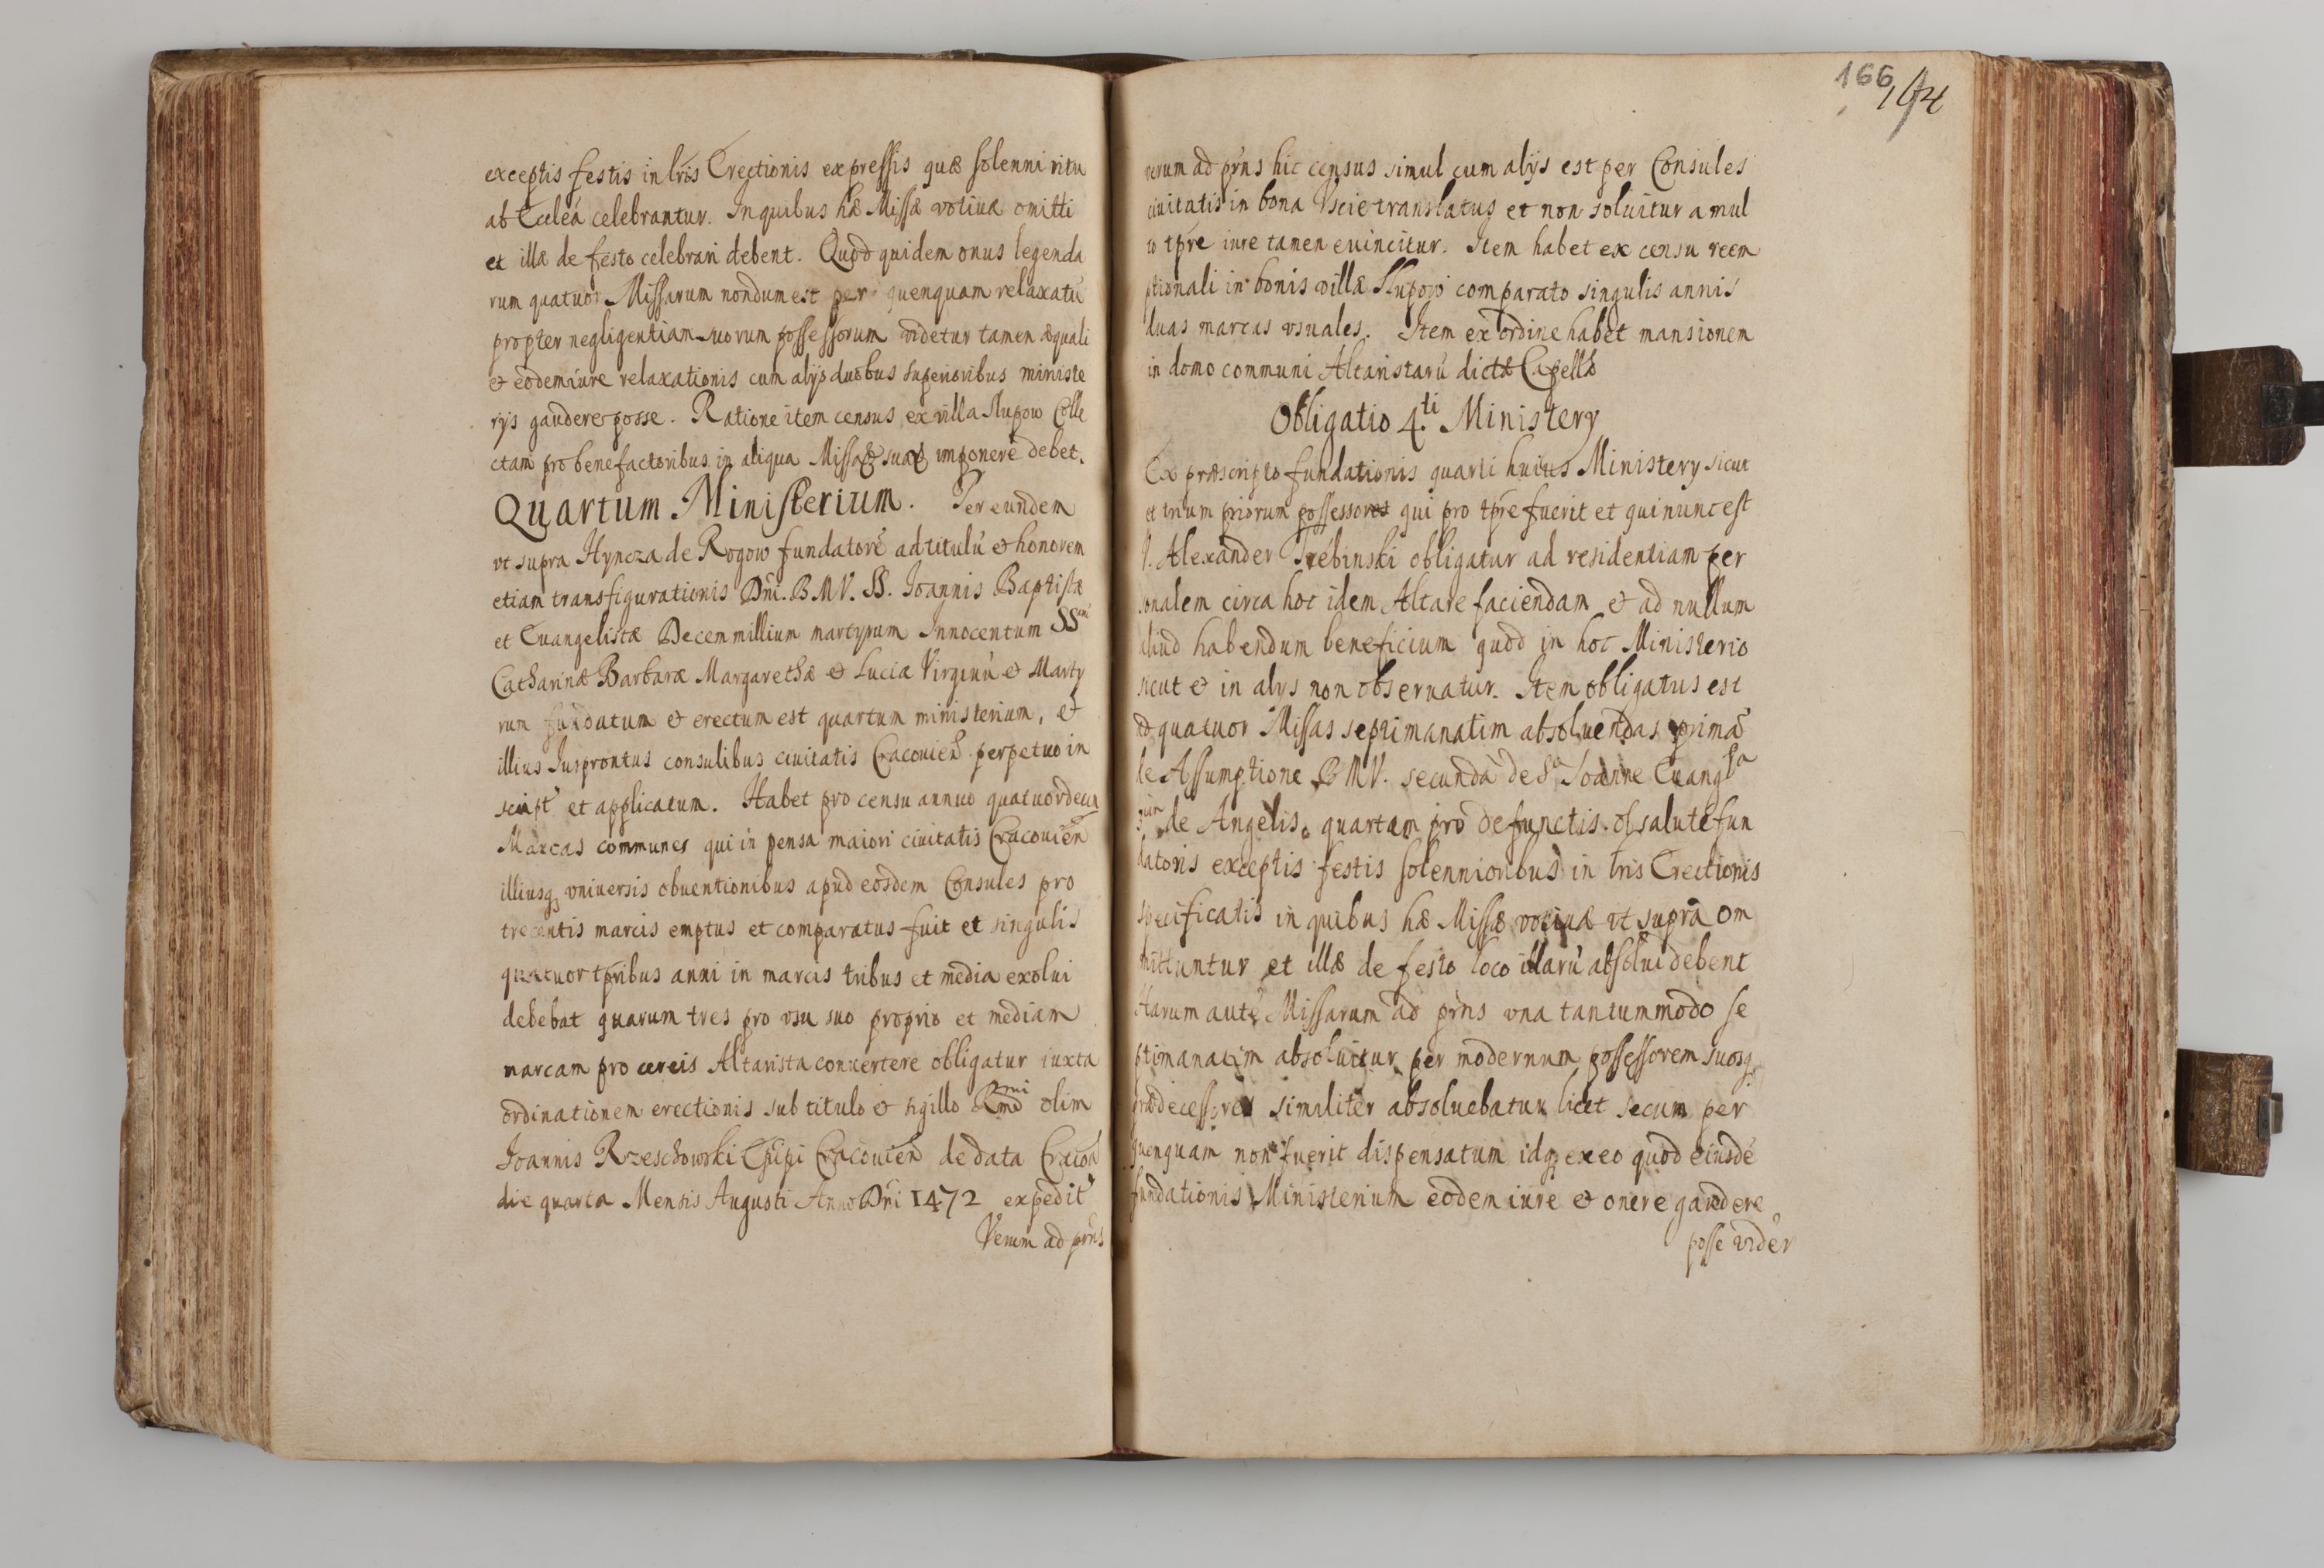 exceptis festis in lris Erectionis expressis quæ solenni ritu
ab Eccleã celebrantur. In quibus hæ Missæ votiuæ omitti
et illæ de festo celebrari debent. Quod quidem onus legenda
rum quatuor Missarum nondum est per quenquam relaxatũ
propter negligentiam suorum possessorum videtur tamen æquali
& eodem iure relaxationis cum alijs duobus superioribus ministe
rijs gaudere posse. Ratione item census ex villa Slupow Colle
ctam pro benefactoribus in aliqua Missa suas imponere debet.
Quartum Ministerium. Per eundem
vt supra Hyncza de Rogow fundatorẽ ad titulũ & honorem
etiam transfigurationis Dni. B M V. SS. Joannis Baptistæ
et Euangelistæ Decem millium martyrum Innocentum SS
Catharinæ Barbaræ Margarethæ & Luciæ Virginũ & Marty
rum fundatum & erectum est quartum ministerium, &
illius Juspr̃ntus consulibus ciuitatis Cracouien̄ perpetuo in
script' et applicatum. Habet pro censu annuo quatuordecim
Marcas communes qui in pensa maiori ciuitatis Cracouien̄
illiusq3 vniuersis obuentionibus apud eosdem Consules pro
trecentis marcis emptus et comparatus fuit et singulis
quatuor tp̃ribus anni in marcis tribus et media exolui
debebat quarum tres pro vsu suo proprio et mediam
marcam pro cereis Altarista conuertere obligatur iuxta
ordinationem erectionis sub titulo & sigillo Rmi olim
Joannis Rzeschowski Ep̃i Cracouien̄ de data Cracou̅
die quarta Mensis Augusti Anno Dni 1472 expedit'
Verum ad pr̃ns
166
verum ad pr̃ns hic census simul cum alijs est per Consules
ciuitatis in bona Vscie translatus et non soluitur a mul
to tp̃re iure tamen euincitur. Item habet ex censu reem
ptionali in bonis villæ Slupow comparato singulis annis
duas marcas vsuales. Item ex ordine habet mansionem
in domo communi Altaristarũ dictæ Capellæ
Obligatio 4.ti Ministery
Ex præscripto fundationis quarti huius Ministery sicut
et trium priorum possessores qui pro tp̃re fuerit et qui nunc est
Alexander Trebinski obligatur ad residentiam per
sonalem circa hoc idem Altare faciendam & ad nullum
aliud habendum beneficium quod in hoc Ministerio
sicut & in alys non obseruatur. Item obligatus est
ad quatuor Missas septimanatim absoluendas primã
de Assumptione B M V. secundã de S. Joanne Euang
de Angelis, quartam pro defunctis ob salutẽ fun
datoris exceptis festis solennioribus in lris Erectionis
specificatis in quibus hæ Missæ votiuæ vt supra om
mittuntur et illæ de festo loco illarũ absolui debent
Harum autẽ Missarum ad pr̃ns vna tantummodo se
ptimanatim absoluitur per modernum possessorem suosq3
prædecessores similiter absoluebatur licet secum per
quenquam non fuerit dispensatum idq3 ex eo quod eiusdẽ
fundationis Ministerium eodem iure & onere gaudere
posse vider̃